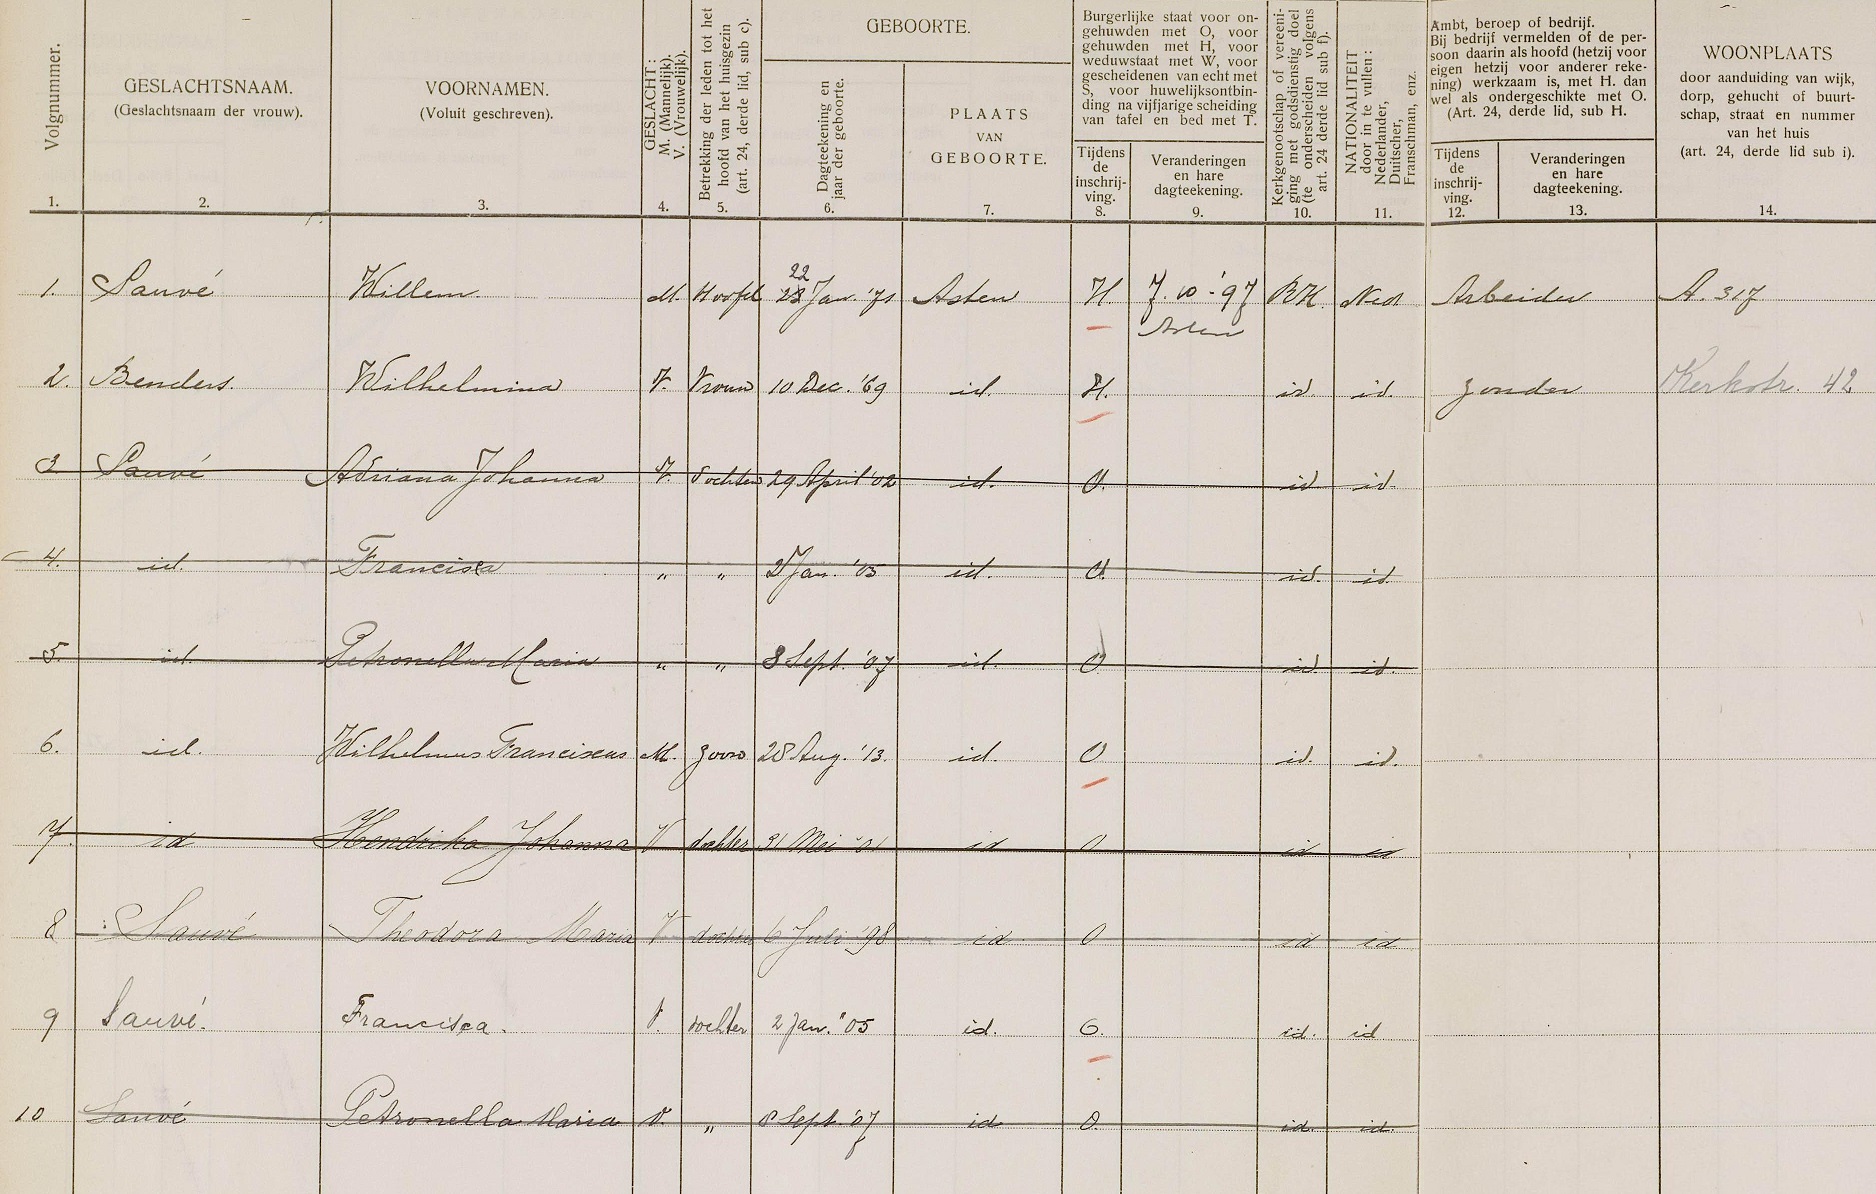 Volgnummer.
1.
GESLACHTSNAAM.
(Geslachtsnaam der vrouw).
2.
VOORNAMEN.
(Voluit geschreven).
3.
GESLACHT:
M. (Mannelijk).
V. (Vrouwelijk).
4.
Betrekking der leden tot het
hoofd van het huisgezin
(art. 24, derde lid, sub c).
5.
GEBOORTE.
Dagteekening en
jaar der geboorte.
6.
PLAATS
VAN
GEBOORTE.
7.
Burgerlijke staat voor on-
gehuwden met O, voor
gehuwden met H, voor
weduwstaat met W, voor
gescheidenen van echt met
S, voor huwelijksontbin-
ding na vijfjarige scheiding
van tafel en bed met T.
Tijdens
de
inschrij-
ving.
8.
Veranderingen
en hare
dagteekening.
9.
Kerkgenootschap of vereeni-
ging met godsdienstig doel
(te onderscheiden volgens
art. 24 derde lid sub f).
10.
NATIONALITEIT
door in te vullen:
Nederlander,
Duitscher,
Franschman, enz.
11.
Ambt, beroep of bedrijf.
Bij bedrijf vermelden of de per-
soon daarin als hoofd (hetzij voor
eigen hetzij voor anderer reke-
ning) werkzaam is, met H. dan
wel als ondergeschikte met O.
(Art. 24, derde lid, sub H.
Tijdens
de
inschrij-
ving.
12.
Veranderingen
en hare
dagteekening.
13.
WOONPLAATS
door aanduiding van wijk,
dorp, gehucht of buurt-
schap, straat en nummer
van het huis
(art. 24, derde lid sub i).
14.
22
1. Sauvé Willem M. Hoofd 23 Jan. '71 Asten H. 7.10-'97 RK. Ned Arbeider A. 317
Asten
2. Benders Wilhelmina V. Vrouw 10 Dec. '69 id. H. id. id. zonder Kerkstr. 42
3 Sauvé Adriana Johanna V. dochter 29 April '02 id. O. id id.
4. id. Francisca " " 2 Jan. '05 id. O. id. id.
5. id. Petronella Maria " " 8 Sept. '07 id. O. id. id.
6. id. Wilhelmus Franciscus M. zoon 28 Aug. '13. id. O id. id.
7. id Hendrika Johanna V dochter 31 Mei '01 id O id id
8 Sauvé Theodora Maria V dochter 6 Juli '98 id O id id
9 Sauvé. Francisca. V. dochter 2 Jan. '05 id. O. id. id
10 Sauvé Petronella Maria V. " 8 Sept. '07 id O. id. id.